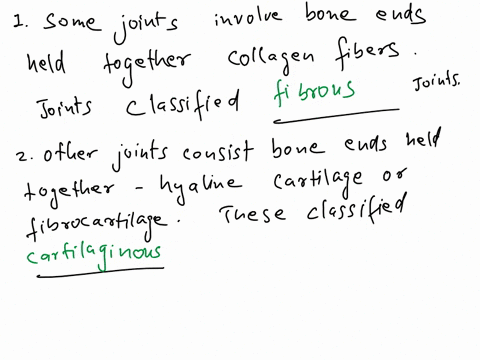 1. Some joints involve bone ends
held together collagen fibers.
Joints classified fibrous Joints.
2. other joints consist bone ends held
together - hyaline cartilage or
fibrocartilage. These classified
cartilaginous